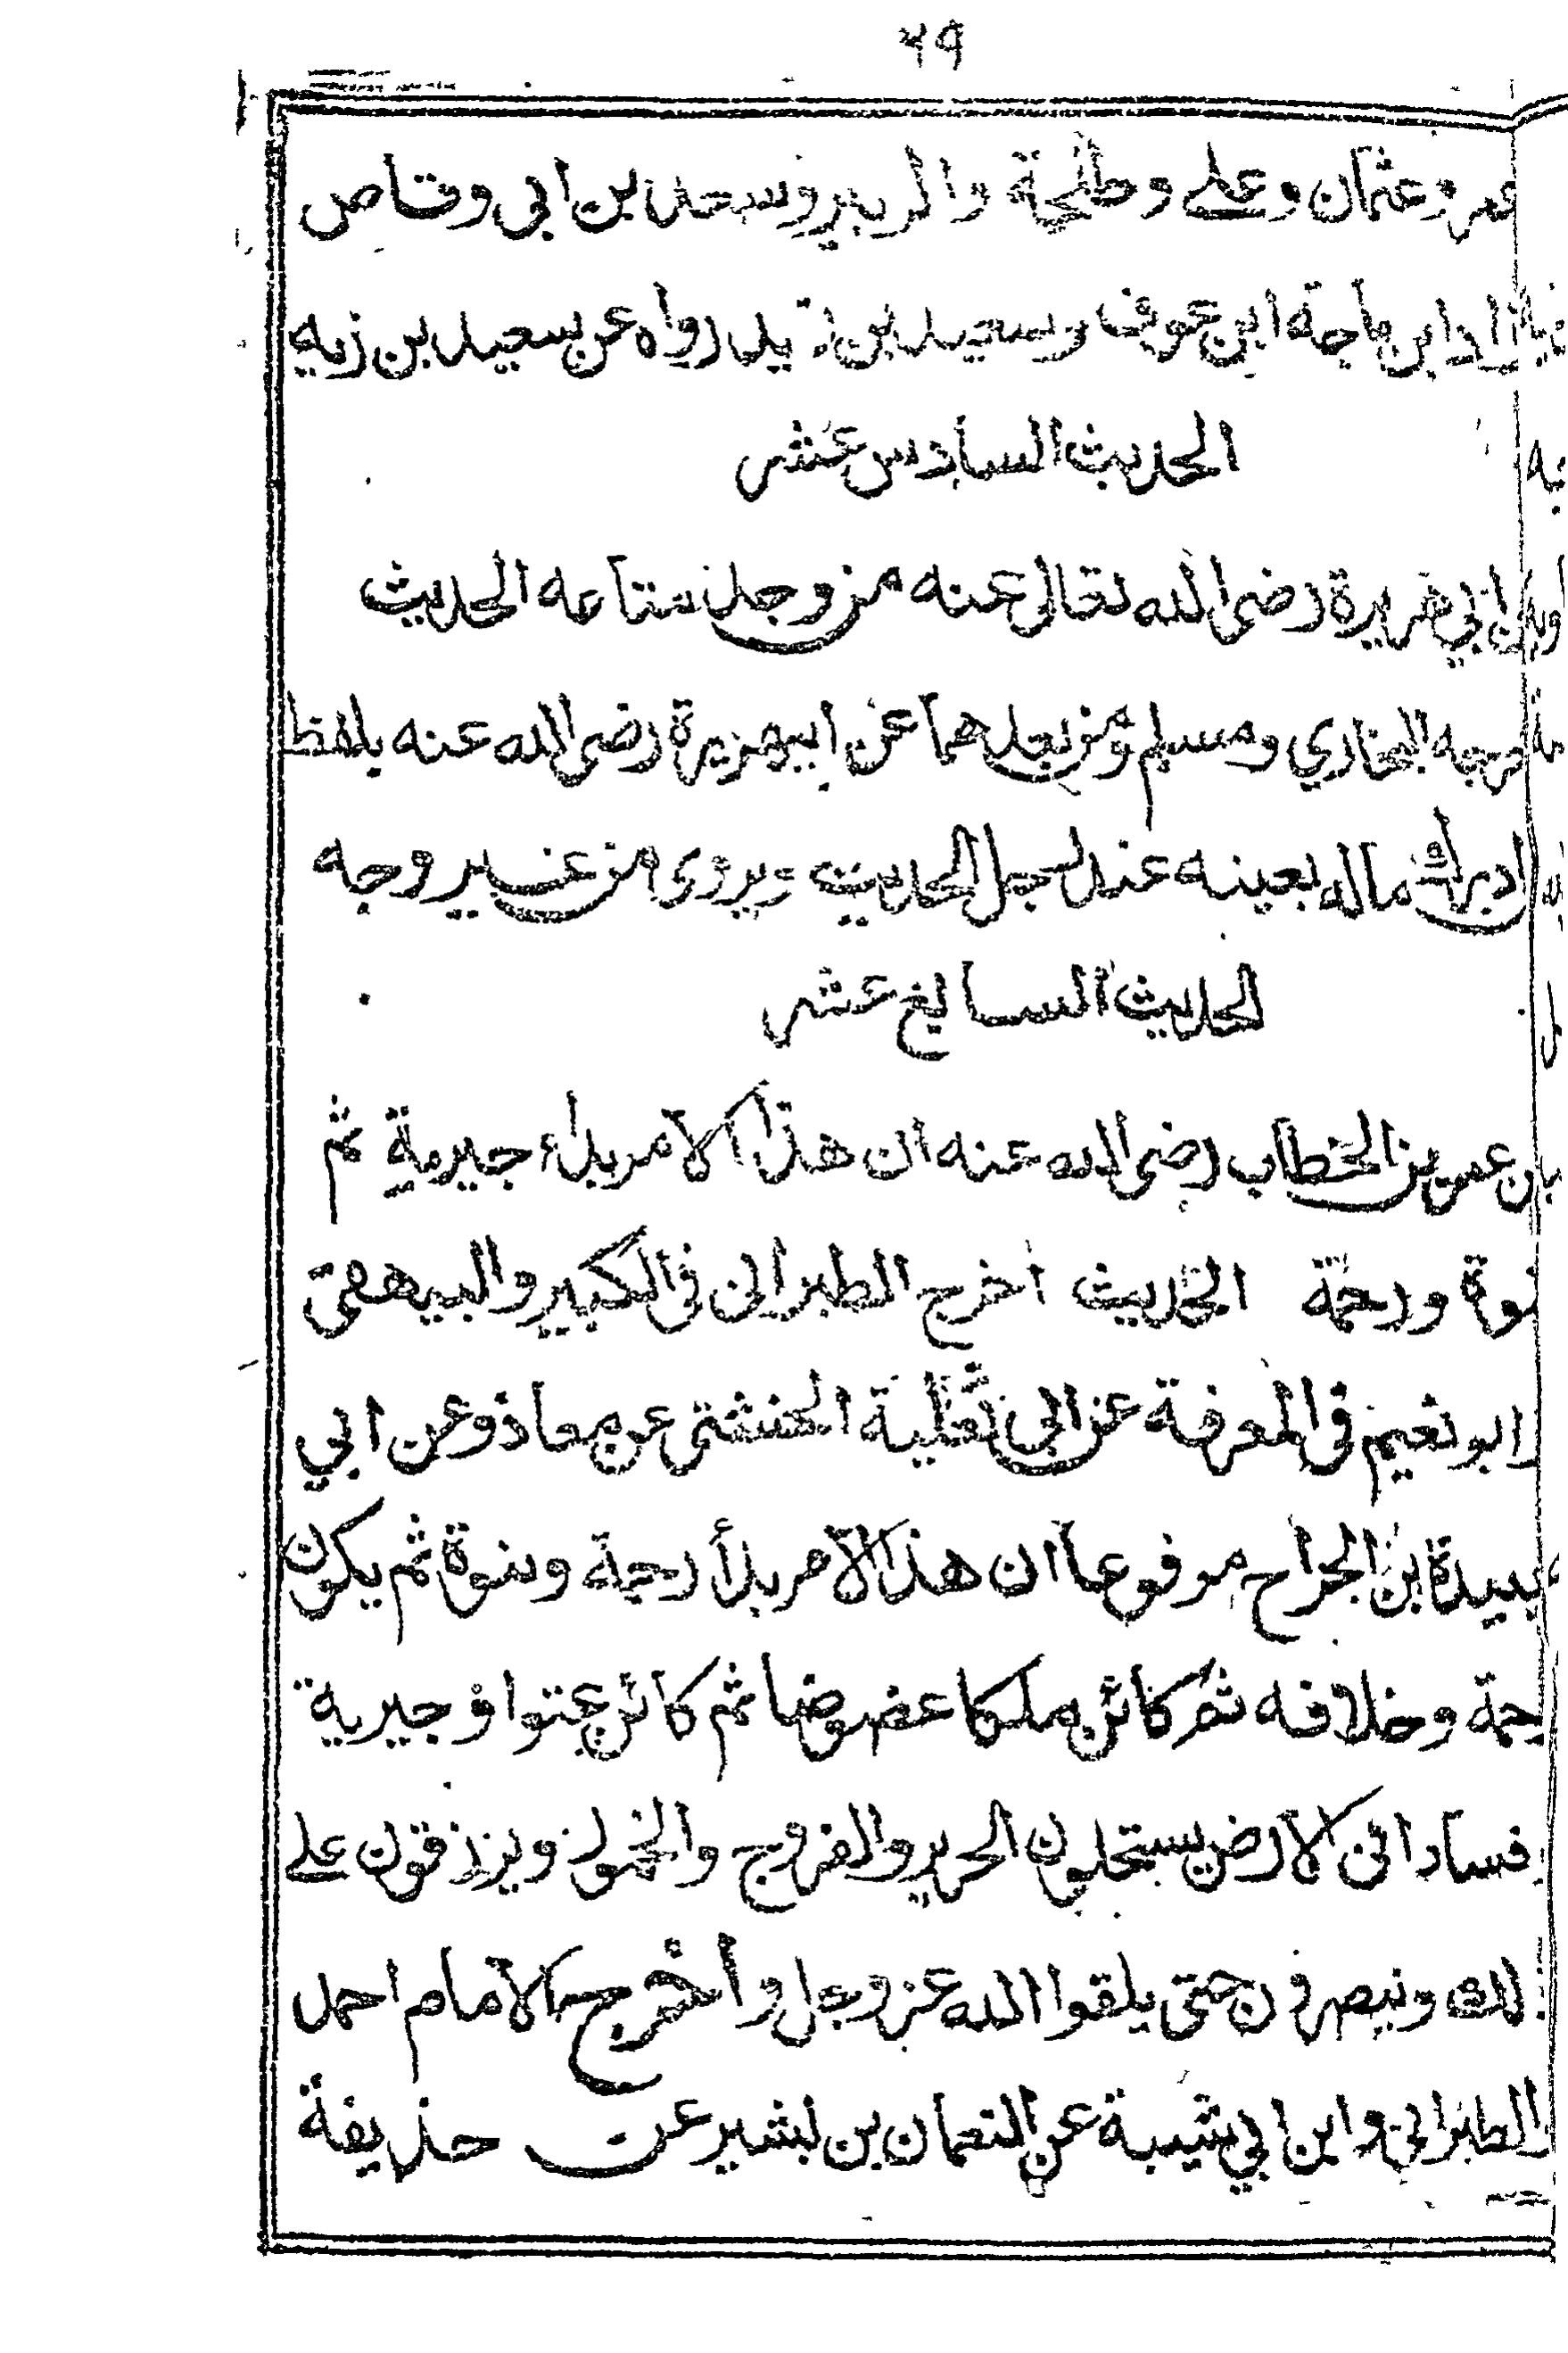 ٢٩
عمر وعثمان وعلي وطلحة والزبير وسعد بن ابي وقاص
زاد ابن ماجة ابن عوف وسعيد بن زيد رواه عن سعيد بن زيد
الحديث السادس عشر
ابي هريرة رضى الله تعالى عنه من وجد متاعه الحديث
البخاري ومسلم ومن بعدهما عن ابيهريرة رضى الله عنه بلفظ
ادرك ماله بعينه عند رجل الحديث ويروى من غير وجه
الحديث السابع عشر
عن عمر بن الخطاب رضى الله عنه ان هذا الامر بداء جبرية ثم
نبوة ورحمة الحديث اخرج الطبرانى فى الكبير والبيهقى
ابو نعيم فى المعرفة عن ابى ثعلبة الخشنى عن معاذ وعن ابي
عبيدة بن الجراح مرفوعا ان هذا الامر بدأ رحمة ونبوة ثم يكون
رحمة وخلافه ثم كائن ملكا عضوضا ثم كائن عتوا و جبرية
فسادا فى الارض يستحلون الحرير والفروج والخمور ويرزقون على
ذلك وينصرون حتى يلقوا الله عز وجل وأخرج الامام احمد
والطبرانى وابن ابي شيبة عن النعمان بن بشير عن حذيفة